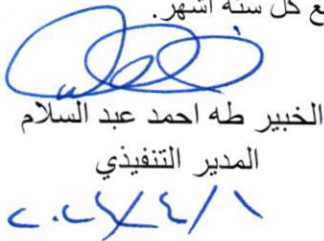 ع كل سته اشهر.
الخبير طه احمد عبد السلام
المدير التنفيذي
٢٠٢٤/٤/١